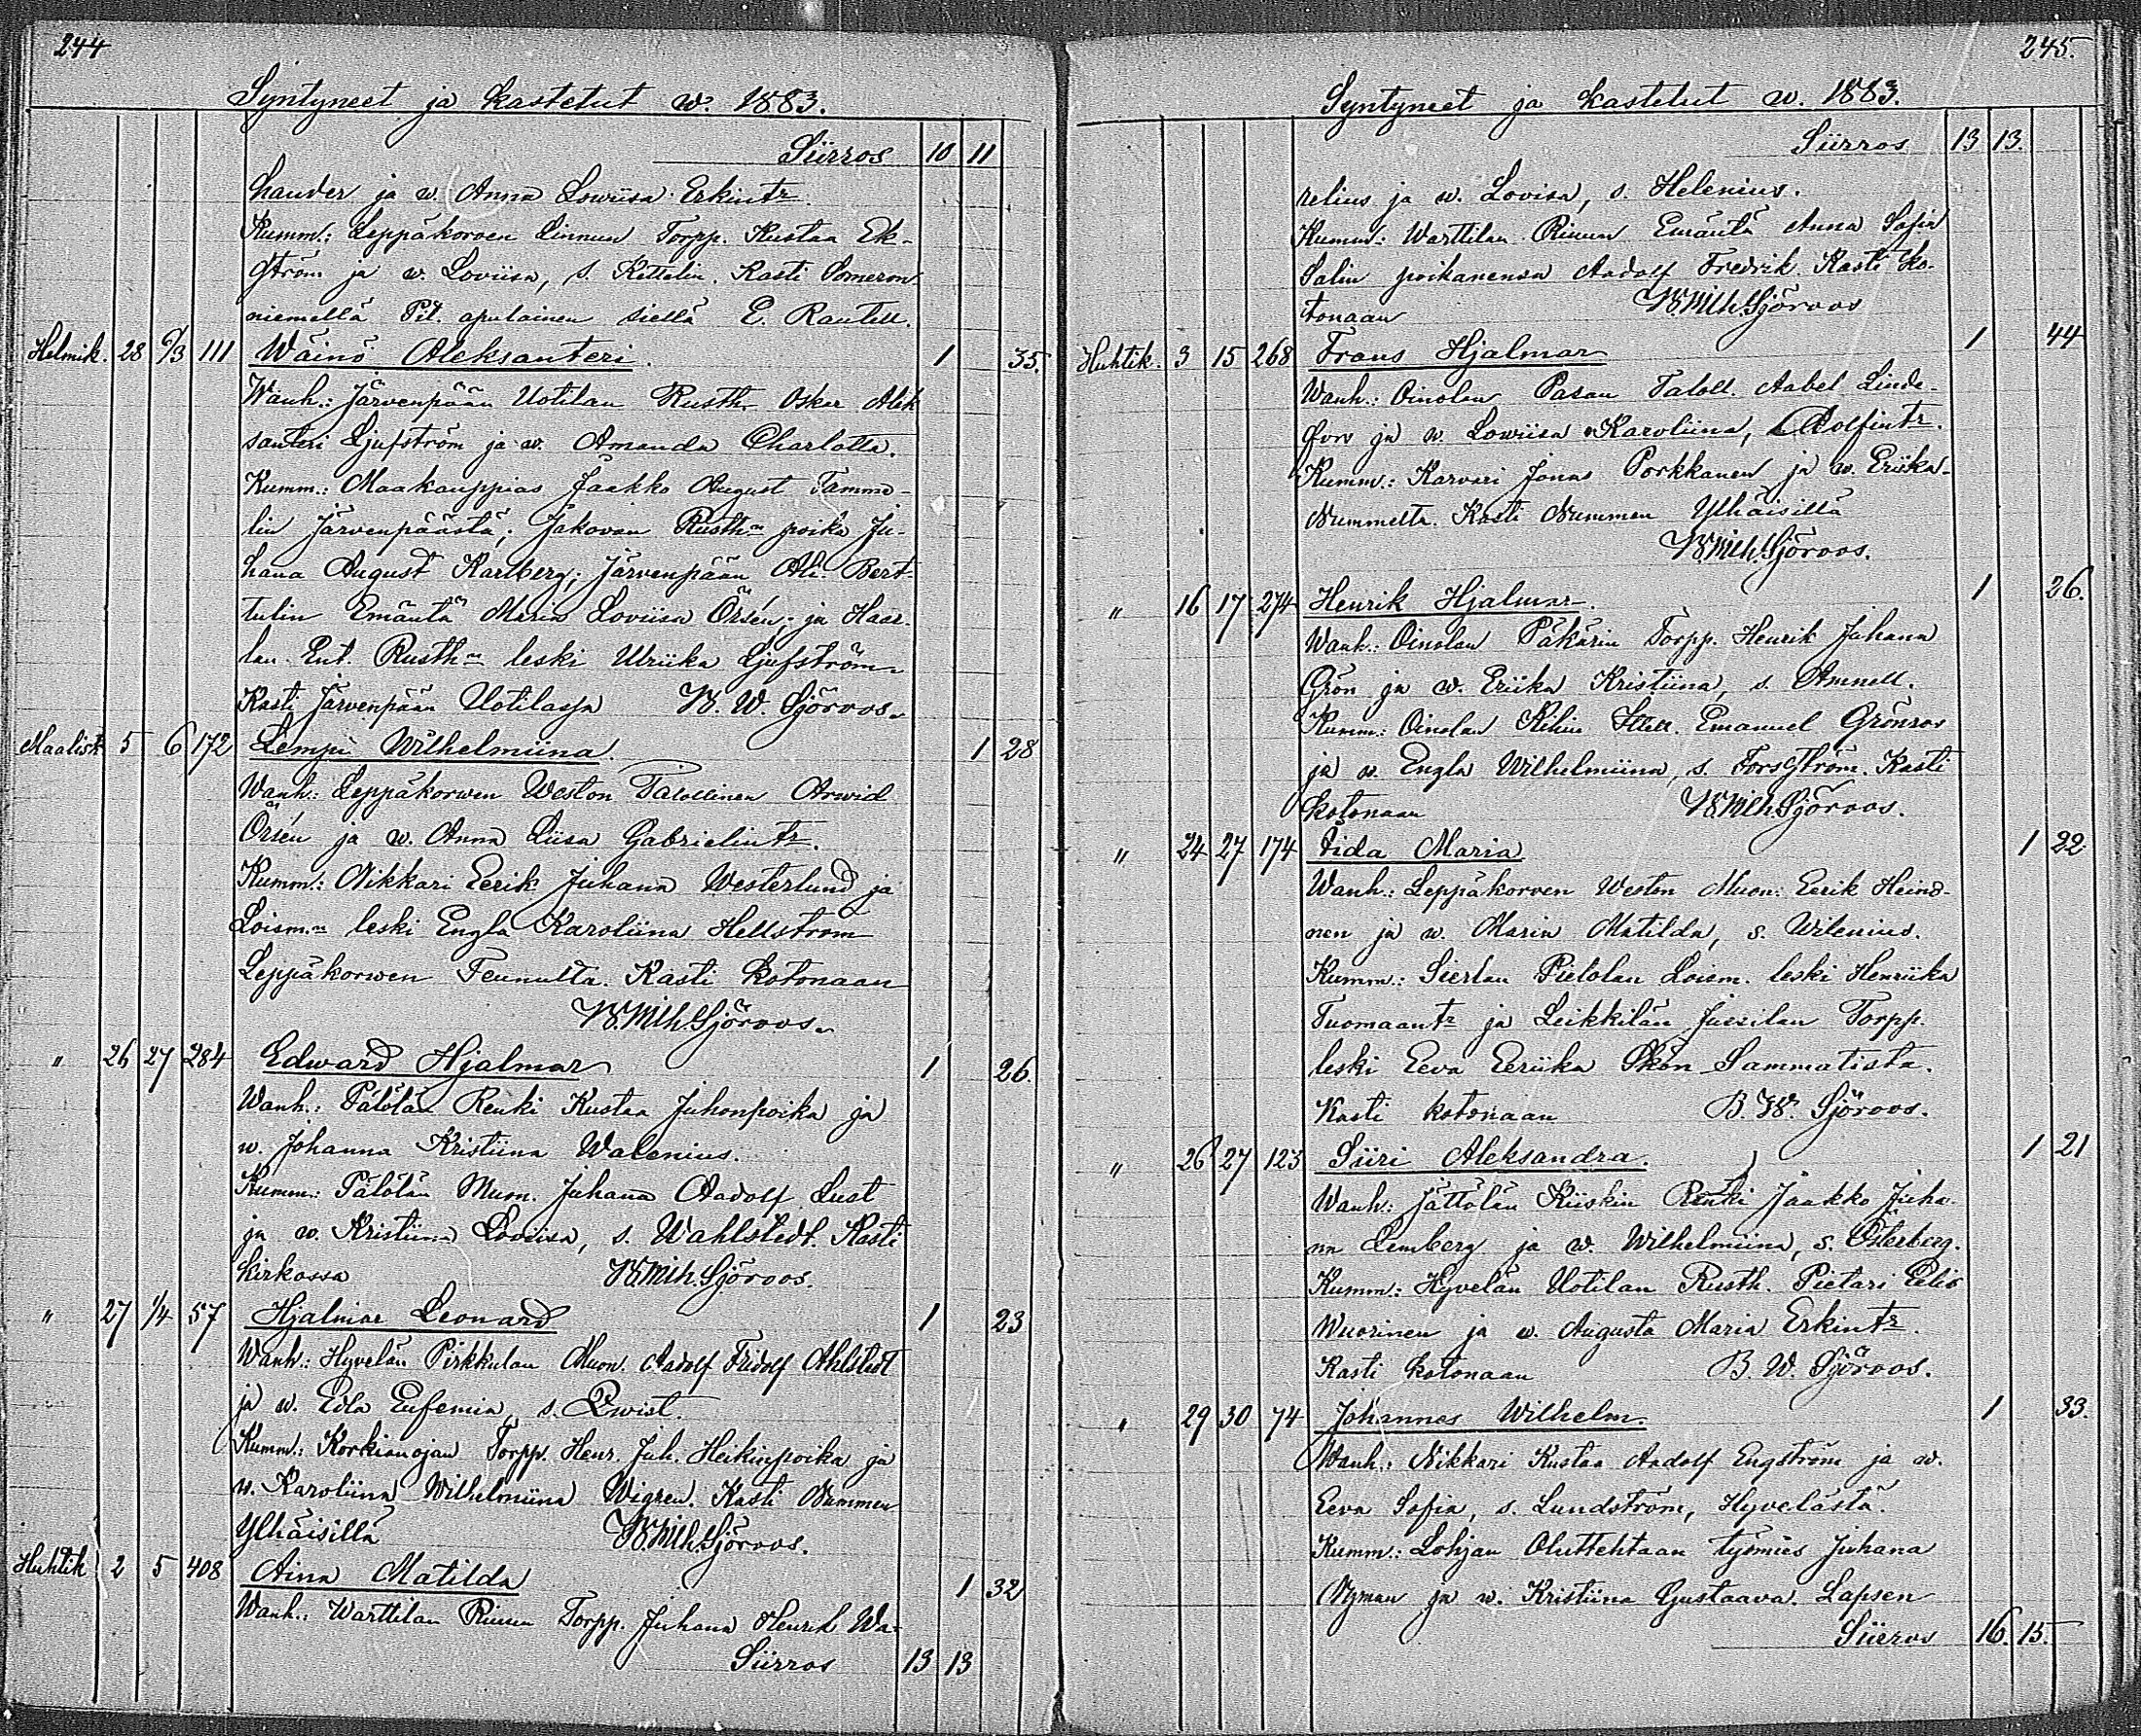 244
Syntyneet ja kastetut w. 1883.
Siirros 10 11
hander ja w. Anna Lowiisa Erkintr.
Kumm.: Leppäkorven Linnun Torpp. Kustaa Ek-
ström ja w. Loviisa, s. Kettelin. Kasti Someron-
niemellä Pit. apulainen siellä E. Rautell.
Helmik. 28 5/3 111 Wäinö Aleksanteri. 1 35.
Wanh.: Järvenpään Uotilan Rusth. Oskar Alek
santeri Ljufström ja w. Amanda Charlotta.
Kumm.: Maakauppias Jaakko August Tamme-
lin Järvenpäästä; Jakovan Rusth:n poika Ju-
hana August Karlberg; Järvenpään Ali Bert-
tulin Emäntä Maria Loviisa Örsén; ja Haar-
lan Ent. Rusth:n leski Ulriika Ljufström.
Kasti Järvenpään Uotilassa B. W. Sjöroos.
Maalisk 5 6 172 Lempi Wilhelmiina. 1 28
Wanh.: Leppäkorwen Weston Talollinen Arwid
Örsén ja w. Anna Liisa Gabrielintr.
Kumm.: Nikkari Eerik Juhana Westerlund ja
Loism:n leski Engla Karoliina Hellström
Leppäkorwen Teunulta. Kasti kotonaan
B. Wilh. Sjöroos.
" 26 27 284 Edward Hjalmar 1 26.
Wanh.: Pälölän Renki Kustaa Juhonpoika ja
w. Johanna Kristiina Walenius.
Kumm.: Pälölän Muon. Juhana Aadolf Lust
ja w. Kristiina Loviisa, s. Wahlstedt. Kasti
kirkossa B. Wilh. Sjöroos.
" 27 1/4 57 Hjalmar Leonard 1 23
Wanh.: Hyvelän Pirkkulan Muon. Aadolf Fridolf Ahlstedt
ja w. Edla Eufemia, s. Qwist.
Kumm.: Korkianojan Torpp. Henr. Juh. Heikinpoika ja
w. Karoliina Wilhelmiina Wigren. Kasti Nummen
Ylhäisillä B. Wilh. Sjöroos.
Huhtik 2 5 408 Aina Matilda 1 32
Wanh.: Warttilan Torpp. Juhana Henrik Wa-
Siirros 13 13
245.
Syntyneet ja kastetut w. 1883.
Siirros 13 13.
relius ja w. Lovisa, s. Helenius.
Kumm.: Warttilan Emäntä Anna Sofia
Salin poikanensa Aadolf Fredrik. Kasti ko-
tonaan B. Wilh. Sjöroos
Huhtik. 3 15 268 Frans Hjalmar 1 44
Wanh.: Oinolan Pasan Taloll. Aabel Linde-
fors ja w. Lowiisa Karoliina, Adolfintr.
Kumm.: Karvari Jonas Porkkanen ja w. Eriika
Nummelta. Kasti Nummen Ylhäisillä
B. Wilh. Sjöroos.
" 16 17 274 Henrik Hjalmar. 1 26.
Wanh.: Oinolan Päkärin Torpp. Henrik Juhana
Grön ja w. Eriika Kristiina, s. Amnell.
Kumm.: Oinolan Emanuel Grönroos
ja w. Engla Wilhelmiina, s. Forsström. Kasti
kotonaan B. Wilh. Sjöroos.
" 24 27 174 Iida Maria 1 22
Wanh.: Leppäkorven Weston Muon. Eerik Heino-
nen ja w. Maria Matilda, s. Wilenius.
Kumm.: Sierlan Pietolan Loism. leski Henriika
Tuomaantr ja Leikkilän Jussilan Torpp.
leski Eeva Eeriika Skön Sammatista.
Kasti kotonaan B. W. Sjöroos.
" 26 27 123 Siiri Aleksandra. 1 21
Wanh.: Jättölän Kiiskin Renki Jaakko Juha-
na Lemberg ja w. Wilhelmiina, s. Österberg.
Kumm.: Hyvelän Uotilan Rusth. Pietari Elis
Wuorinen ja w. Augusta Maria Erkintr.
Kasti kotonaan B. W. Sjöroos.
" 29 30 74 Johannes Wilhelm. 1 33.
Wanh.: Nikkari Kustaa Aadolf Engström ja w.
Eeva Sofia, s. Lundström, Hyvelästä.
Kumm.: Lohjan Oluttehtaan työmies Juhana
Nyman ja w. Kristiina Gustaava. Lapsen
Siirros 16. 15.